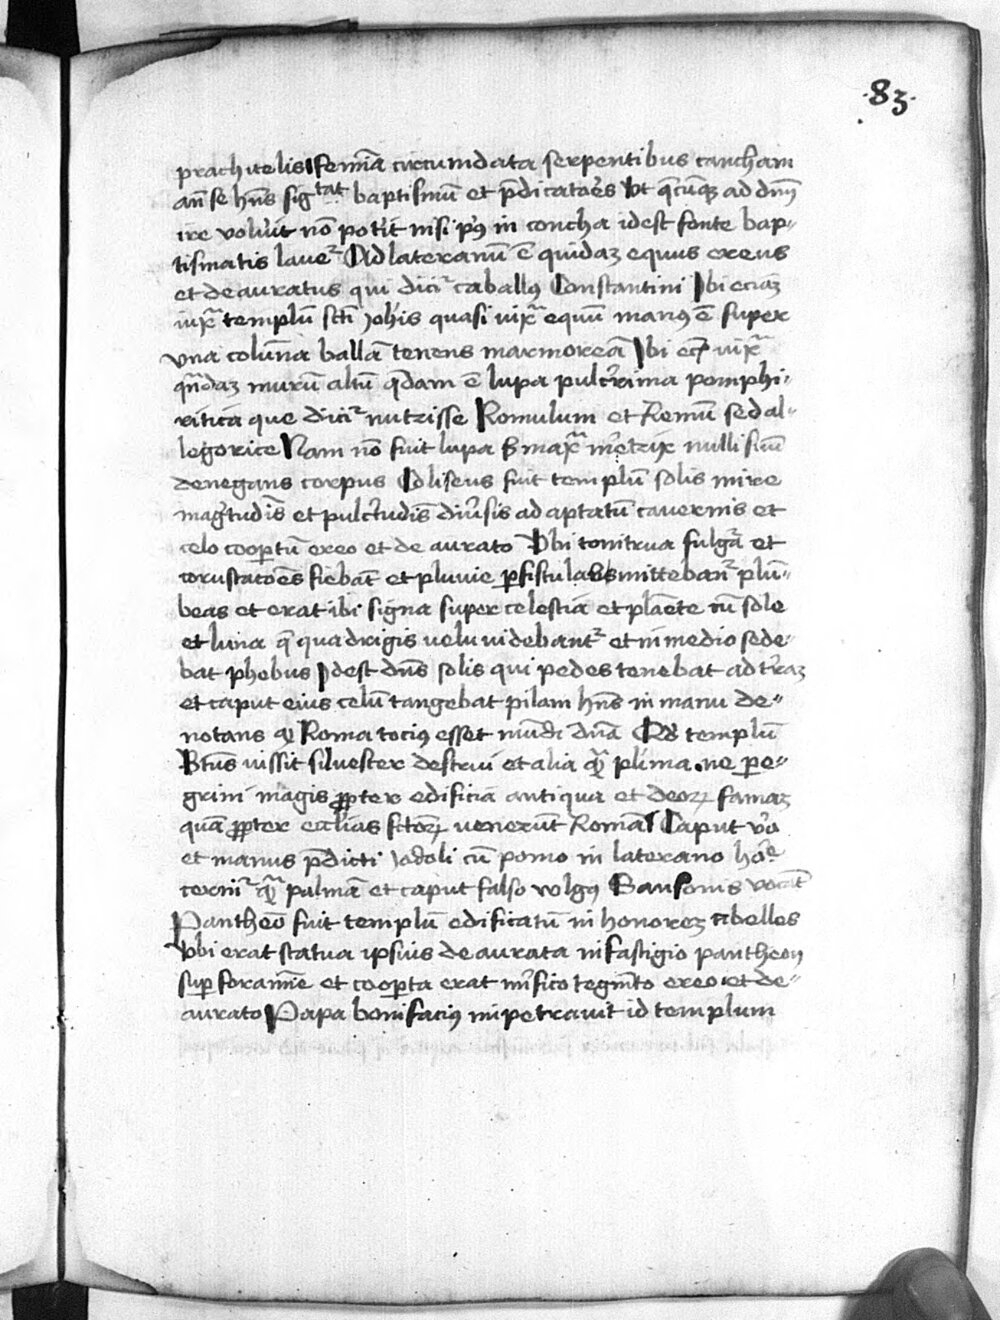 ·83·
prachitelis femīa circumdata serpentibus concham
an̄ se hn̄s sigtat baptismū et p̄dicatoēs vt q̄cūq; ad dnm̄
ire volūit nō pot'it nisi p'9 in concha idest fonte bap-
tismatis laue2 Ad lateranū ē quidaz equus ereus
et deauratus qui dici2 caball9 Constantini Ibi eciaz
iux templū scti Johīs quasi iux equū mari9 ē super
vna coluna balla tenens marmoreā Ibi ec iux
qn̄daz murū altū q̄dam ē lupa pulc'rima pomphi-
ritica que dici2 nutrisse Romulum et Remū sed al-
legorice Nam nō fuit lupa s; max m'etrix nulli suū
denegans corpus Coliseus fuit templū solis mire
mag'tudīs et pulc'tudīs diu'sis ad aptatū cauernis et
celo coop̄tū ereo et de aurato Vbi tonitrua fulg'a et
coruscatoēs fiebāt et pluuie p fistulas mitteban2 plū-
beas et erat ibi signa super celestia et planete cū sole
et luna q̄ quadrigis uelu uidebant2 et in medio sede-
bat phebus Idest dn̄s solis qui pedes tenebat ad t'raz
et caput eius celū tangebat pilam hn̄s in manu de-
notans q Roma toci9 esset mūdi dn̄a Qd templū
Btūs iussit siluester destrui et alia q plima. ne pe-
grini magis ppter edificia antiqua et deor famaz
quā ppter ecclīas sctor venerūt Romā Caput v'o
et manus p̄dicti Jodoli cū pomo in laterano
palmā et caput falso volg9 Sansonis vocāt
Pantheō fuit templū edificatū in honorez cibelles
Vbi erat statua ipsius de aurata in fastigio pantheon
sup foramīe et coop̄ta erat m'ifico tegm̄to ereo et de-
aurato Papa bonifaci9 impetrauit id templum